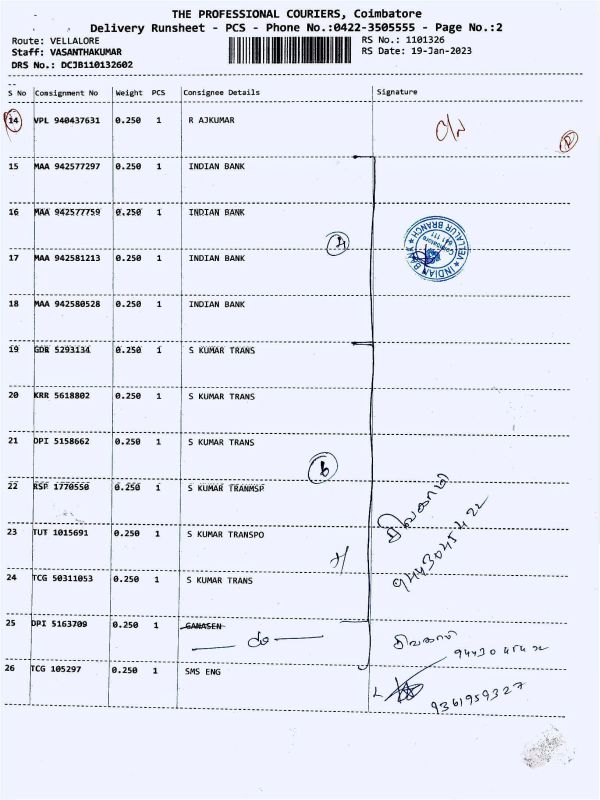 THE PROFESSIONAL COURIERS, Coimbatore
Delivery Runsheet - PCS - Phone No.:0422-3505555 - Page No.:2
Route: VELLALORE
RS No.: 1101326
Staff: VASANTHAKUMAR
RS Date: 19-Jan-2023
DRS No.: DCJB110132602
S No Consignment No Weight PCS Consignee Details Signature
14 VPL 940437631 0.250 1 R AJKUMAR
15 MAA 942577297 0.250 1 INDIAN BANK
16 MAA 942577759 0.250 1 INDIAN BANK
4
INDIAN BANK ★ VELLALUR BRANCH ★
Coimbatore
641 111
17 MAA 942581213 0.250 1 INDIAN BANK
18 MAA 942580528 0.250 1 INDIAN BANK
19 GDR 5293134 0.250 1 S KUMAR TRANS
20 KRR 5618802 0.250 1 S KUMAR TRANS
21 DPI 5158662 0.250 1 S KUMAR TRANS
6
22 RSP 1770550 0.250 1 S KUMAR TRANMSP
23 TUT 1015691 0.250 1 S KUMAR TRANSPO
9443045422
24 TCG 50311053 0.250 1 S KUMAR TRANS
25 DPI 5163709 0.250 1 GANASEN
do
9443045422
26 TCG 105297 0.250 1 SMS ENG
9361959327